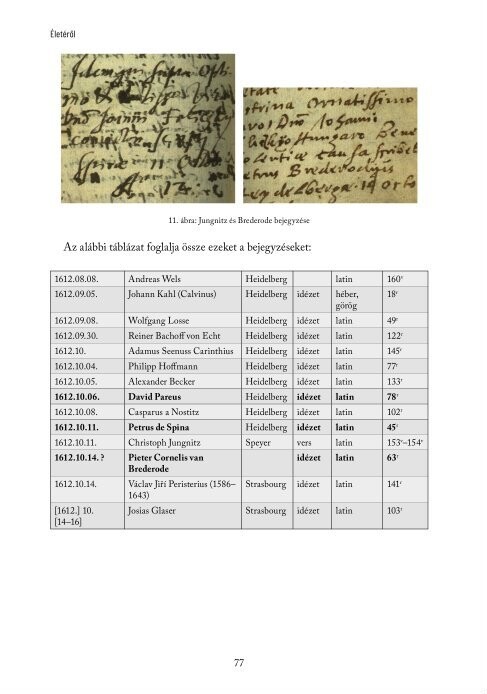 Életéről
11. ábra: Jungnitz és Brederode bejegyzése
Az alábbi táblázat foglalja össze ezeket a bejegyzéseket:
1612.08.08. Andreas Wels Heidelberg latin 160ʳ
1612.09.05. Johann Kahl (Calvinus) Heidelberg idézet héber, 18ʳ
görög
1612.09.08. Wolfgang Losse Heidelberg latin 49ʳ
1612.09.30. Reiner Bachoff von Echt Heidelberg latin 122ʳ
1612.10. Adamus Seenuss Carinthius Heidelberg idézet latin 145ʳ
1612.10.04. Philipp Hoffmann Heidelberg idézet latin 77ʳ
1612.10.05. Alexander Becker Heidelberg idézet latin 133ʳ
1612.10.06. David Pareus Heidelberg idézet latin 78ʳ
1612.10.08. Casparus a Nostitz Heidelberg idézet latin 102ʳ
1612.10.11. Petrus de Spina Heidelberg idézet latin 45ʳ
1612.10.11. Christoph Jungnitz Speyer vers latin 153ᵛ–154ᵛ
1612.10.14. ? Pieter Cornelis van idézet latin 63ʳ
Brederode
1612.10.14. Václav Jiří Peristerius (1586– Strasbourg idézet latin 141ʳ
1643)
[1612.] 10. Josias Glaser Strasbourg idézet latin 103ʳ
[14–16]
77